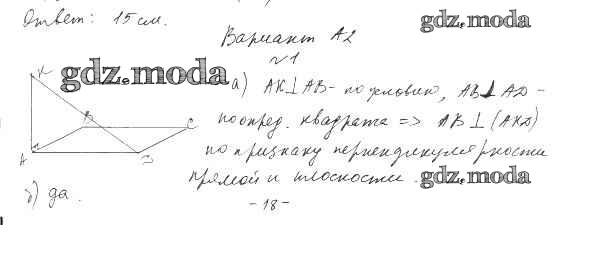 Ответ: 15 см.
gdz.moda
Вариант А2
№1
gdz.moda
К
а) АК⊥АВ - по условию, АВ⊥АD -
В
С
по опред. квадрата => АВ⊥(АКD)
А
D
по признаку перпендикулярности
прямой и плоскости.
gdz.moda
б) да.
- 18 -